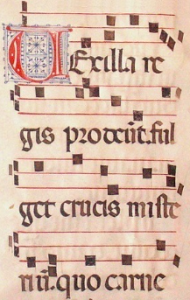 VExilla re
gis prodeũt. ful
get crucis miste
riũ. quo carne